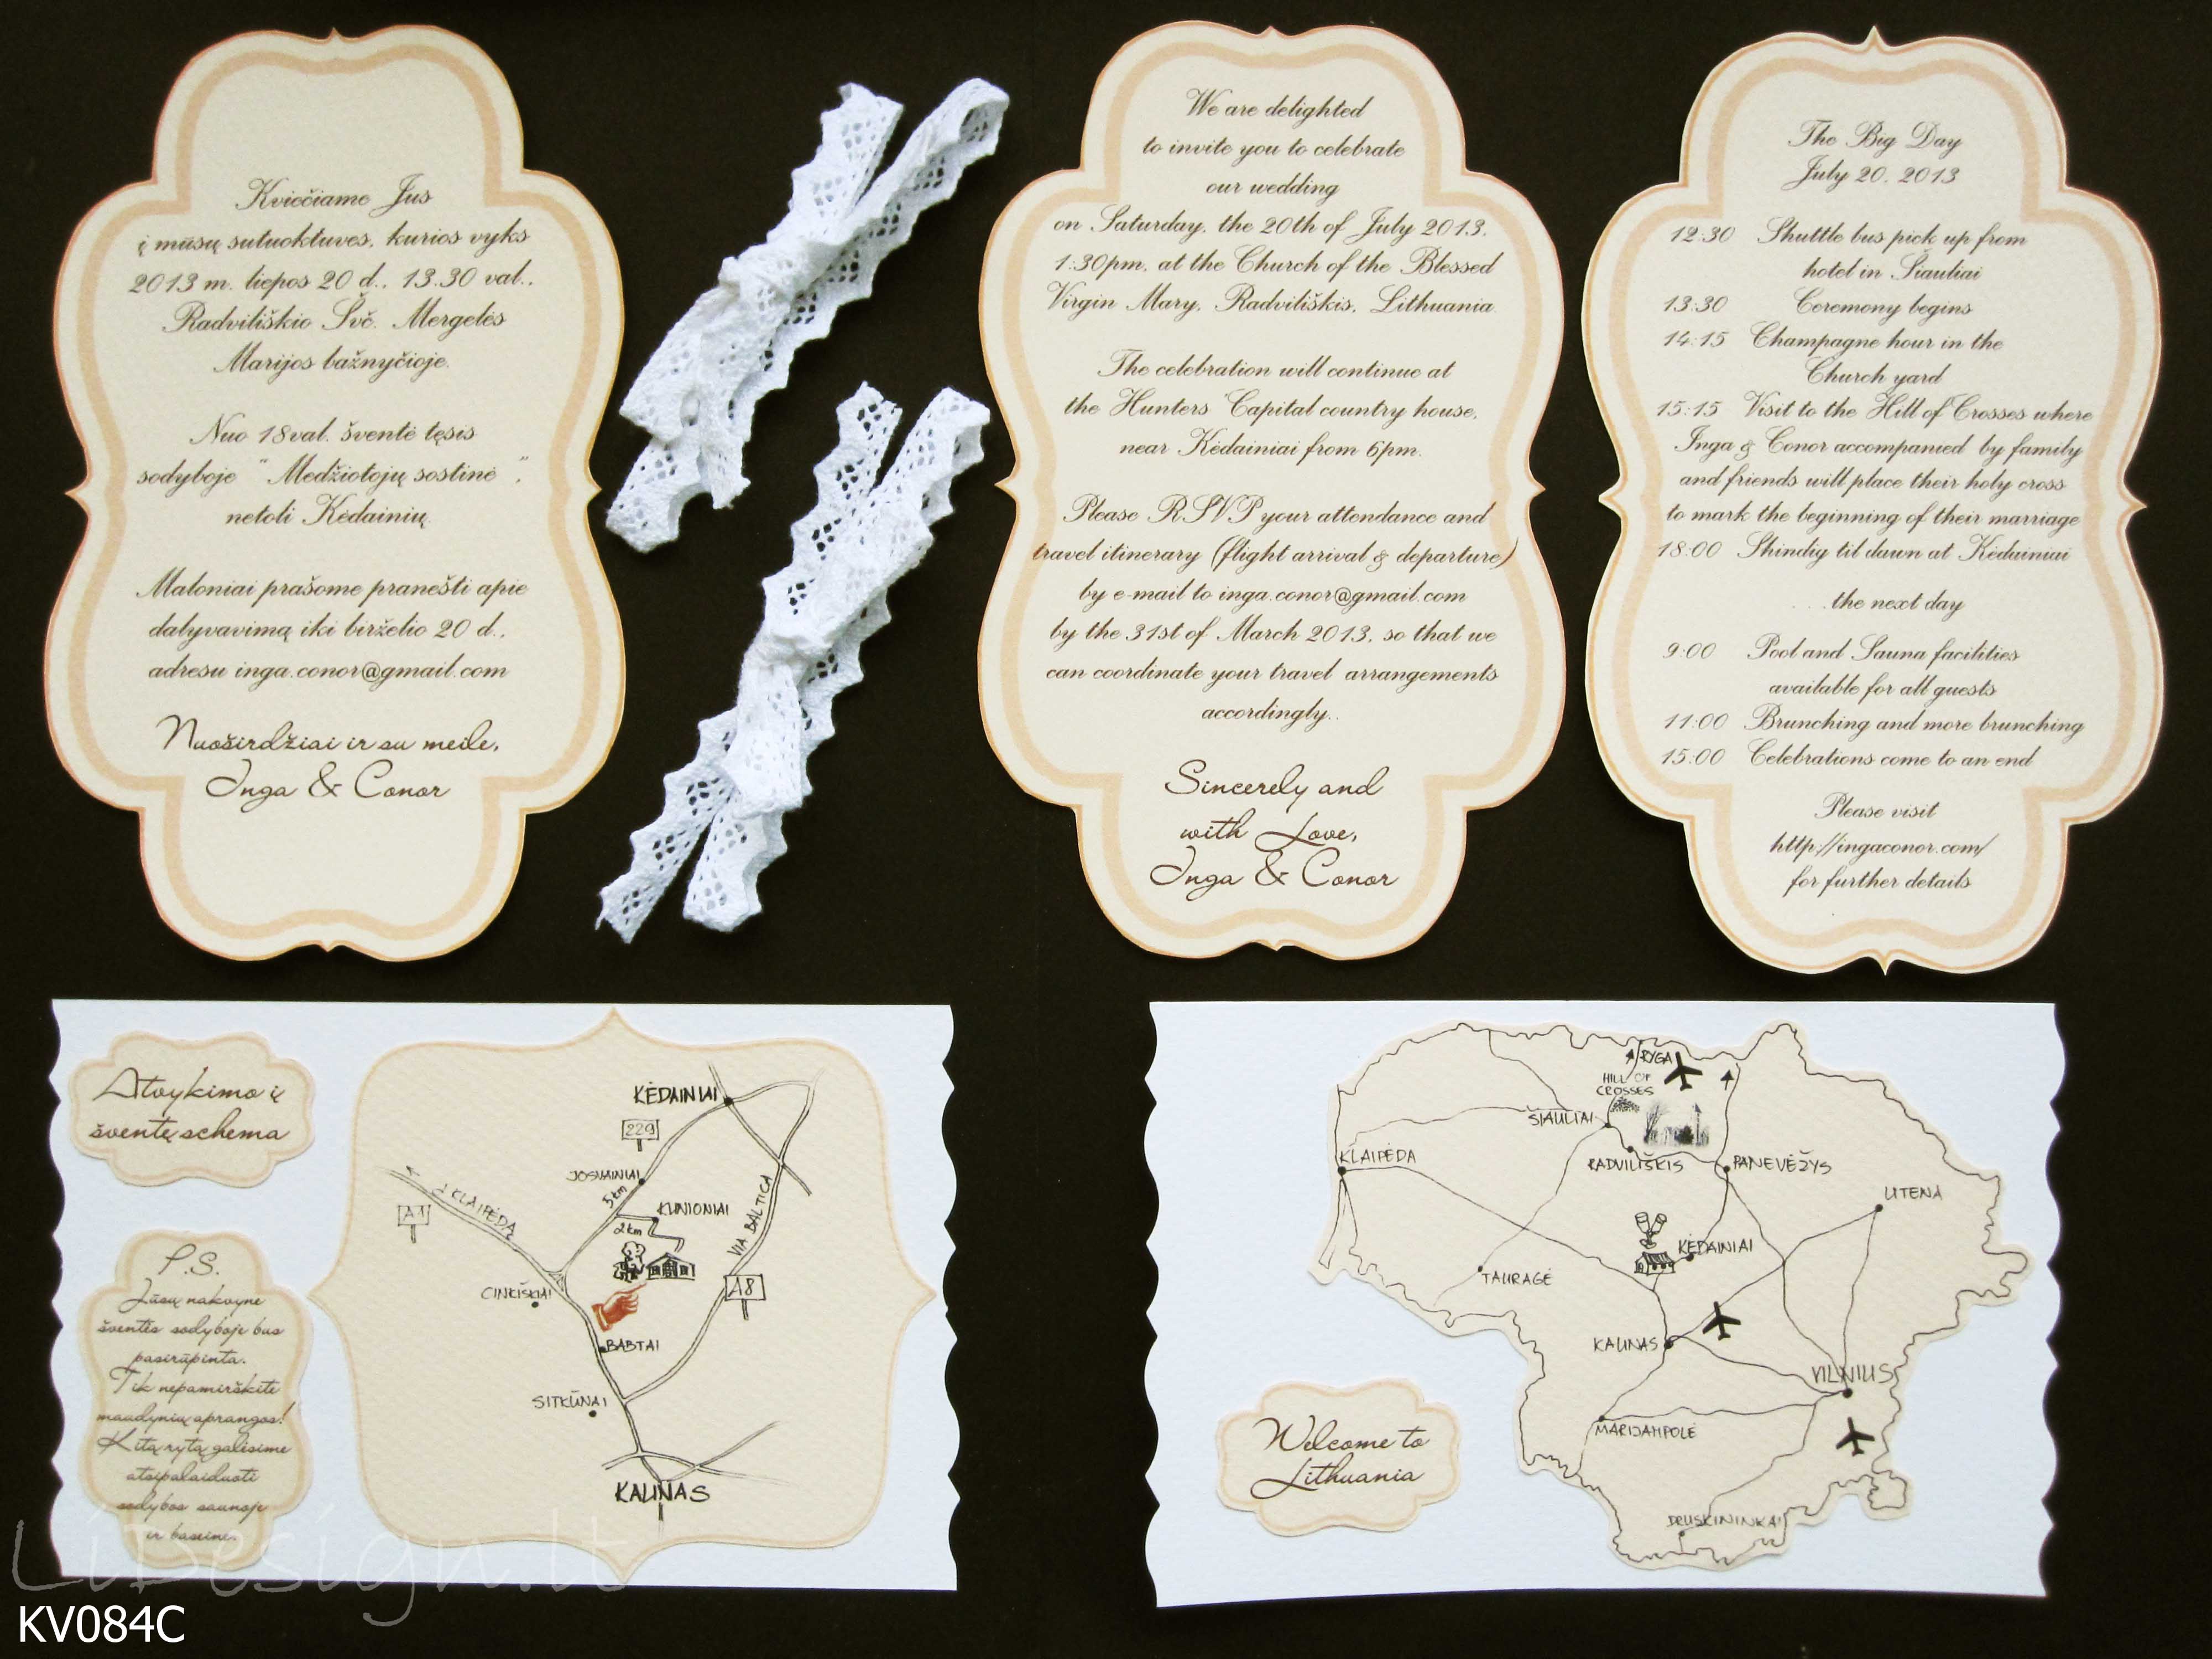 Kviečiame Jus
į mūsų sutuoktuves, kurios vyks
2013 m. liepos 20 d., 13.30 val.,
Radviliškio Švč. Mergelės
Marijos bažnyčioje.
Nuo 18val. šventė tęsis
sodyboje "Medžiotojų sostinė",
netoli Kėdainių.
Maloniai prašome pranešti apie
dalyvavimą iki birželio 20 d.,
adresu inga.conor@gmail.com
Nuoširdžiai ir su meile,
Inga & Conor
We are delighted
to invite you to celebrate
our wedding
on Saturday, the 20th of July 2013,
1:30pm, at the Church of the Blessed
Virgin Mary, Radviliškis, Lithuania.
The celebration will continue at
the Hunters' Capital country house,
near Kėdainiai from 6pm.
Please RSVP your attendance and
travel itinerary (flight arrival & departure)
by e-mail to inga.conor@gmail.com
by the 31st of March 2013, so that we
can coordinate your travel arrangements
accordingly..
Sincerely and
with Love,
Inga & Conor
The Big Day
July 20, 2013
12:30 Shuttle bus pick up from
hotel in Siauliai
13:30 Ceremony begins
14:15 Champagne hour in the
Church yard
15:15 Visit to the Hill of Crosses where
Inga & Conor accompanied by family
and friends will place their holy cross
to mark the beginning of their marriage
18:00 Shindig til dawn at Kėdainiai
...the next day
9:00 Pool and Sauna facilities
available for all guests
11:00 Brunching and more brunching
15:00 Celebrations come to an end
Please visit
http://ingaconor.com/
for further details
Atvykimo į
šventę schema
P.S.
Jūsų nakvyne
šventės sodyboje bus
pasirūpinta.
Tik nepamirškite
maudynių aprangos!
Kitą rytą galėsime
atsipalaiduoti
sodybos saunoje
ir baseine.
KĖDAINIAI
229
JOSVAINIAI
5 km
KUNIONIAI
2 km
Į KLAIPĖDA
A1
VIA BALTICA
A8
CINKIŠKIAI
BABTAI
SITKŪNAI
KAUNAS
RYGA
HILL OF
CROSSES
ŠIAULIAI
KLAIPĖDA
RADVILIŠKIS
PANEVĖŽYS
UTENA
KĖDAINIAI
TAURAGĖ
KAUNAS
VILNIUS
MARIJAMPOLĖ
DRUSKININKAI
Welcome to
Lithuania
LiDesign.lt
KV084C